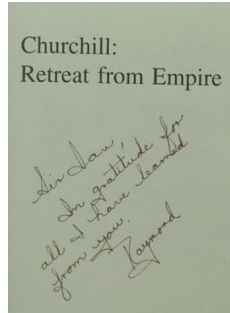 Churchill:
Retreat from Empire
Sir Ian,
In gratitude for
all I have learned
from you.
Raymond